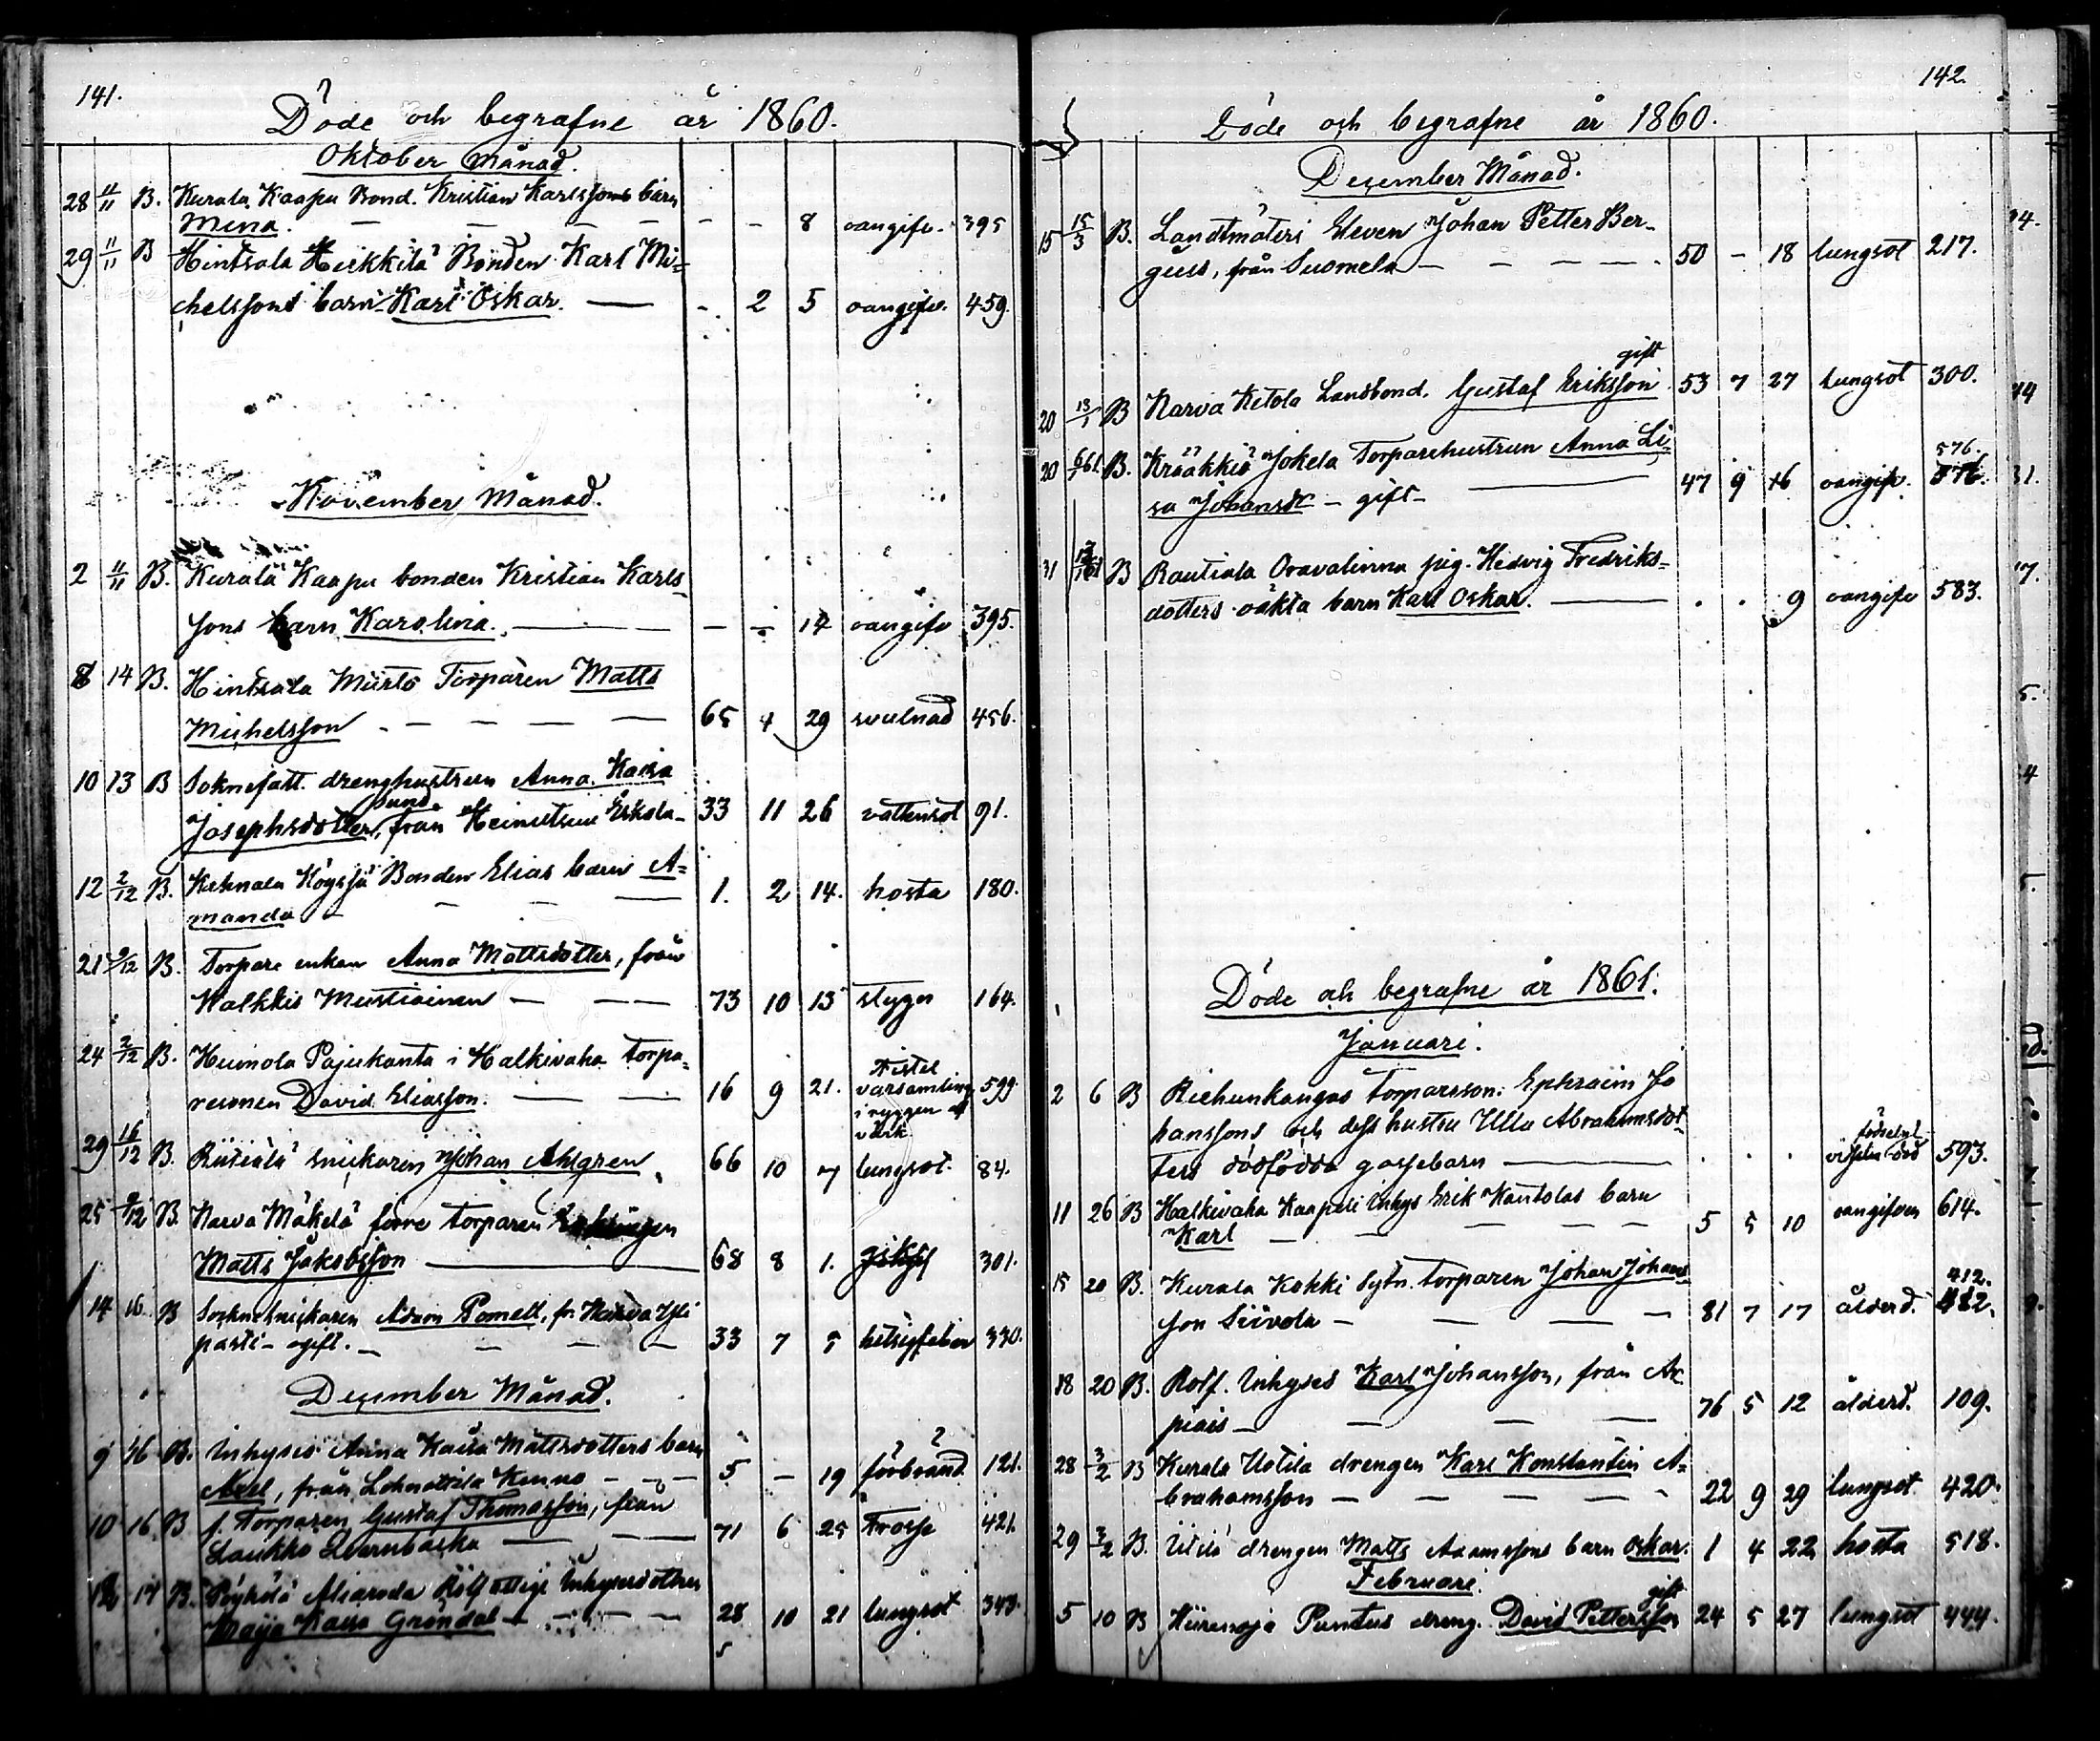 141.
Döde och begrafne år 1860.
Oktober Månad.
28 11/11 B. Kurala Kaapu Bond. Kristian Karlssons barn
Mina. - - - - - 8 oangifv. 395
29 11/11 B Hintsala Heikkilä Bonden Karl Mi=
chelssons barn Karl Oskar. — - 2 5 oangifv. 459.
November Månad.
2 11/11 B. Kurala Kaapu bonden Kristian Karls
sons barn Karolina. — - - 14 oangifv 395.
8 14 B. Hintsala Murto Torparen Matts
Michelsson - - - - 65 4 29 svulnad 456.
10 13 B Soknefatt. drenghustrun Anna Kaisa
Josephsdotter, från Heiniksuu Eskola - 33 11 26 vattensot 91.
12 2/12 B. Kahnala Bonden Elias barn A=
manda - - - 1. 2 14. hosta 180.
21 9/12 B. Torpare enkan Anna Mattsdotter, från
Walkkis Mustiainen - - - 73 10 13 stygn 164.
24 2/12 B. Huinola Pajukanta i Halkivaha torpa=
resonen David Eliasson. - - 16 9 21. Fistel
varsamling 599.
i ryggen af
värk
29 16/12 B. Rütiälä snickaren Johan Ahlgren 66 10 7 lungsot. 84.
25 9/12 B. Narva Mäkelä förre torparen
Matts Jakobsson — 68 8 1. 301.
14 16. B Sockne snickaren Adam Pomell, fr. Narva Yli
parti - ogift. - - - 33 7 5 hetsigfeber 330.
December Månad.
9 16 B. Inhyses Anna Kaisa Mattsdotters barn
Axel, från Lehmottila Kunno - - - 5 - 19 förbränd 121.
10 16 B f. Torparen Gustaf Thomasson, från
Laukko Qvarnbacka - - 71 6 25 Frossa 421.
12 17 B. Alaroda Rotfattige Inhysesdottren
Maija Kaisa Gröndal - - - - 28 10 21 lungsot 343.
5
142.
Döde och begrafne år 1860.
December Månad.
15 15/3 B. Landtmäteri Eleven Johan Petter Ber-
gius, från Suomela - - - - 50 - 18 lungsot 217.
gift
20 13/1 B Narva Ketola Landbond. Gustaf Eriksson 53 7 27 lungsot 300.
20 6/1 61. B. Krääkkiö Jokela Torparehustrun Anna Li
576.
sa Johansdr - gift - — 47 9 16 oangifv. 576.
31 B Rautiala Oravalinna pig. Hedvig Fredriks=
dotters oäkta barn Karl Oskar. — . . 9 oangifv 583.
Döde och begrafne år 1861.
Januari.
2 6 B Riehunkangas torparsson: Ephraim Jo
hanssons och dess hustru Ulla Abrahamsdot
ters dödfödda gossebarn — . . . 593.
11 26 B Halkivaha Kaapeli Inhys Erik Kantolas barn
Karl - - - - - 5 5 10 oangifven 614.
15 20 B. Kurala Kokki Sytn. torparen Johan Johans
412.
son Siivola - - - - 81 7 17 ålderd. 412.
18 20 B. Rotf. Inhyses Karl Johansson, från Ar
piais - - - - 76 5 12 ålderd. 109.
28 3/2 B Kurala Uotila drengen Karl Konstantin A=
brahamsson - - - - - 22 9 29 lungsot 420.
29 3/2 B. Uliä drengen Matts Adamssons barn Oskar. 1 4 22 hosta 518.
Februari.
gift
5 10 B Hiirenoja Puntus dreng. David Pettersson 24 5 27 lungsot 444.